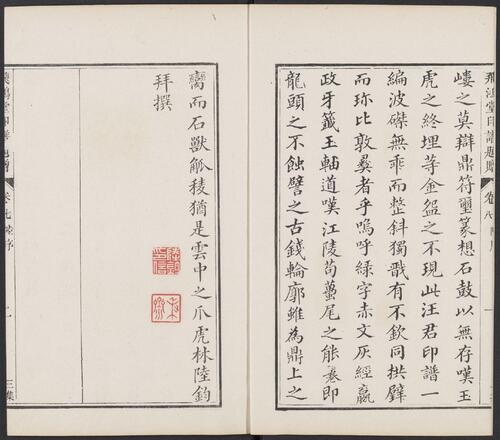 飛鴻堂印譜題贈
卷八
嶁之莫辯鼎符璽篆想石鼓以無存嘆玉
虎之終埋等金盌之不現此汪君印譜一
編波磔無乖而整斜獨戬有不欽同拱璧
而珎比敦彞者乎嗚呼綠字赤文灰經嬴
政牙籤玉軸道嘆江陵苟蠆尾之能卷即
龍頭之不蝕譬之古錢輪廓雖為鼎上之
鸞而石獸觚稜猶是雲中之爪虎林陸鈞
拜撰
三集